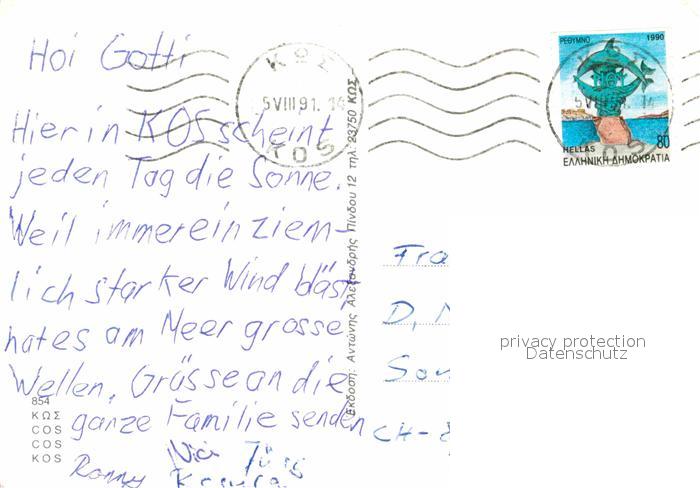 Hoi Gotti
Hier in KOS scheint
jeden Tag die Sonne.
Weil immer ein ziem-
lich starker Wind bläst,
hat es am Meer grosse
Wellen. Grüsse an die
ganze Familie senden
Ronny Nici Jürg
854
ΚΩΣ
COS
COS
KOS
Έκδοση: Αντώνης Αλεξανδρής Πίνδου 12 τηλ: 23750 ΚΩΣ
ΚΩΣ
5 VIII 91. 14
KOS
ΡΕΘΥΜΝΟ 1990
5 VIII 91. 14
KOS
80
HELLAS
ΕΛΛΗΝΙΚΗ ΔΗΜΟΚΡΑΤΙΑ
Fra
D.
CH-
privacy protection
Datenschutz